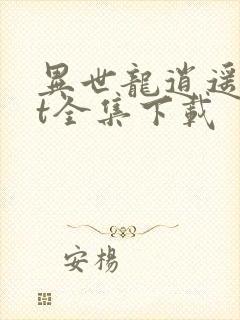 異世龍逍遥
t全集下載
安楊